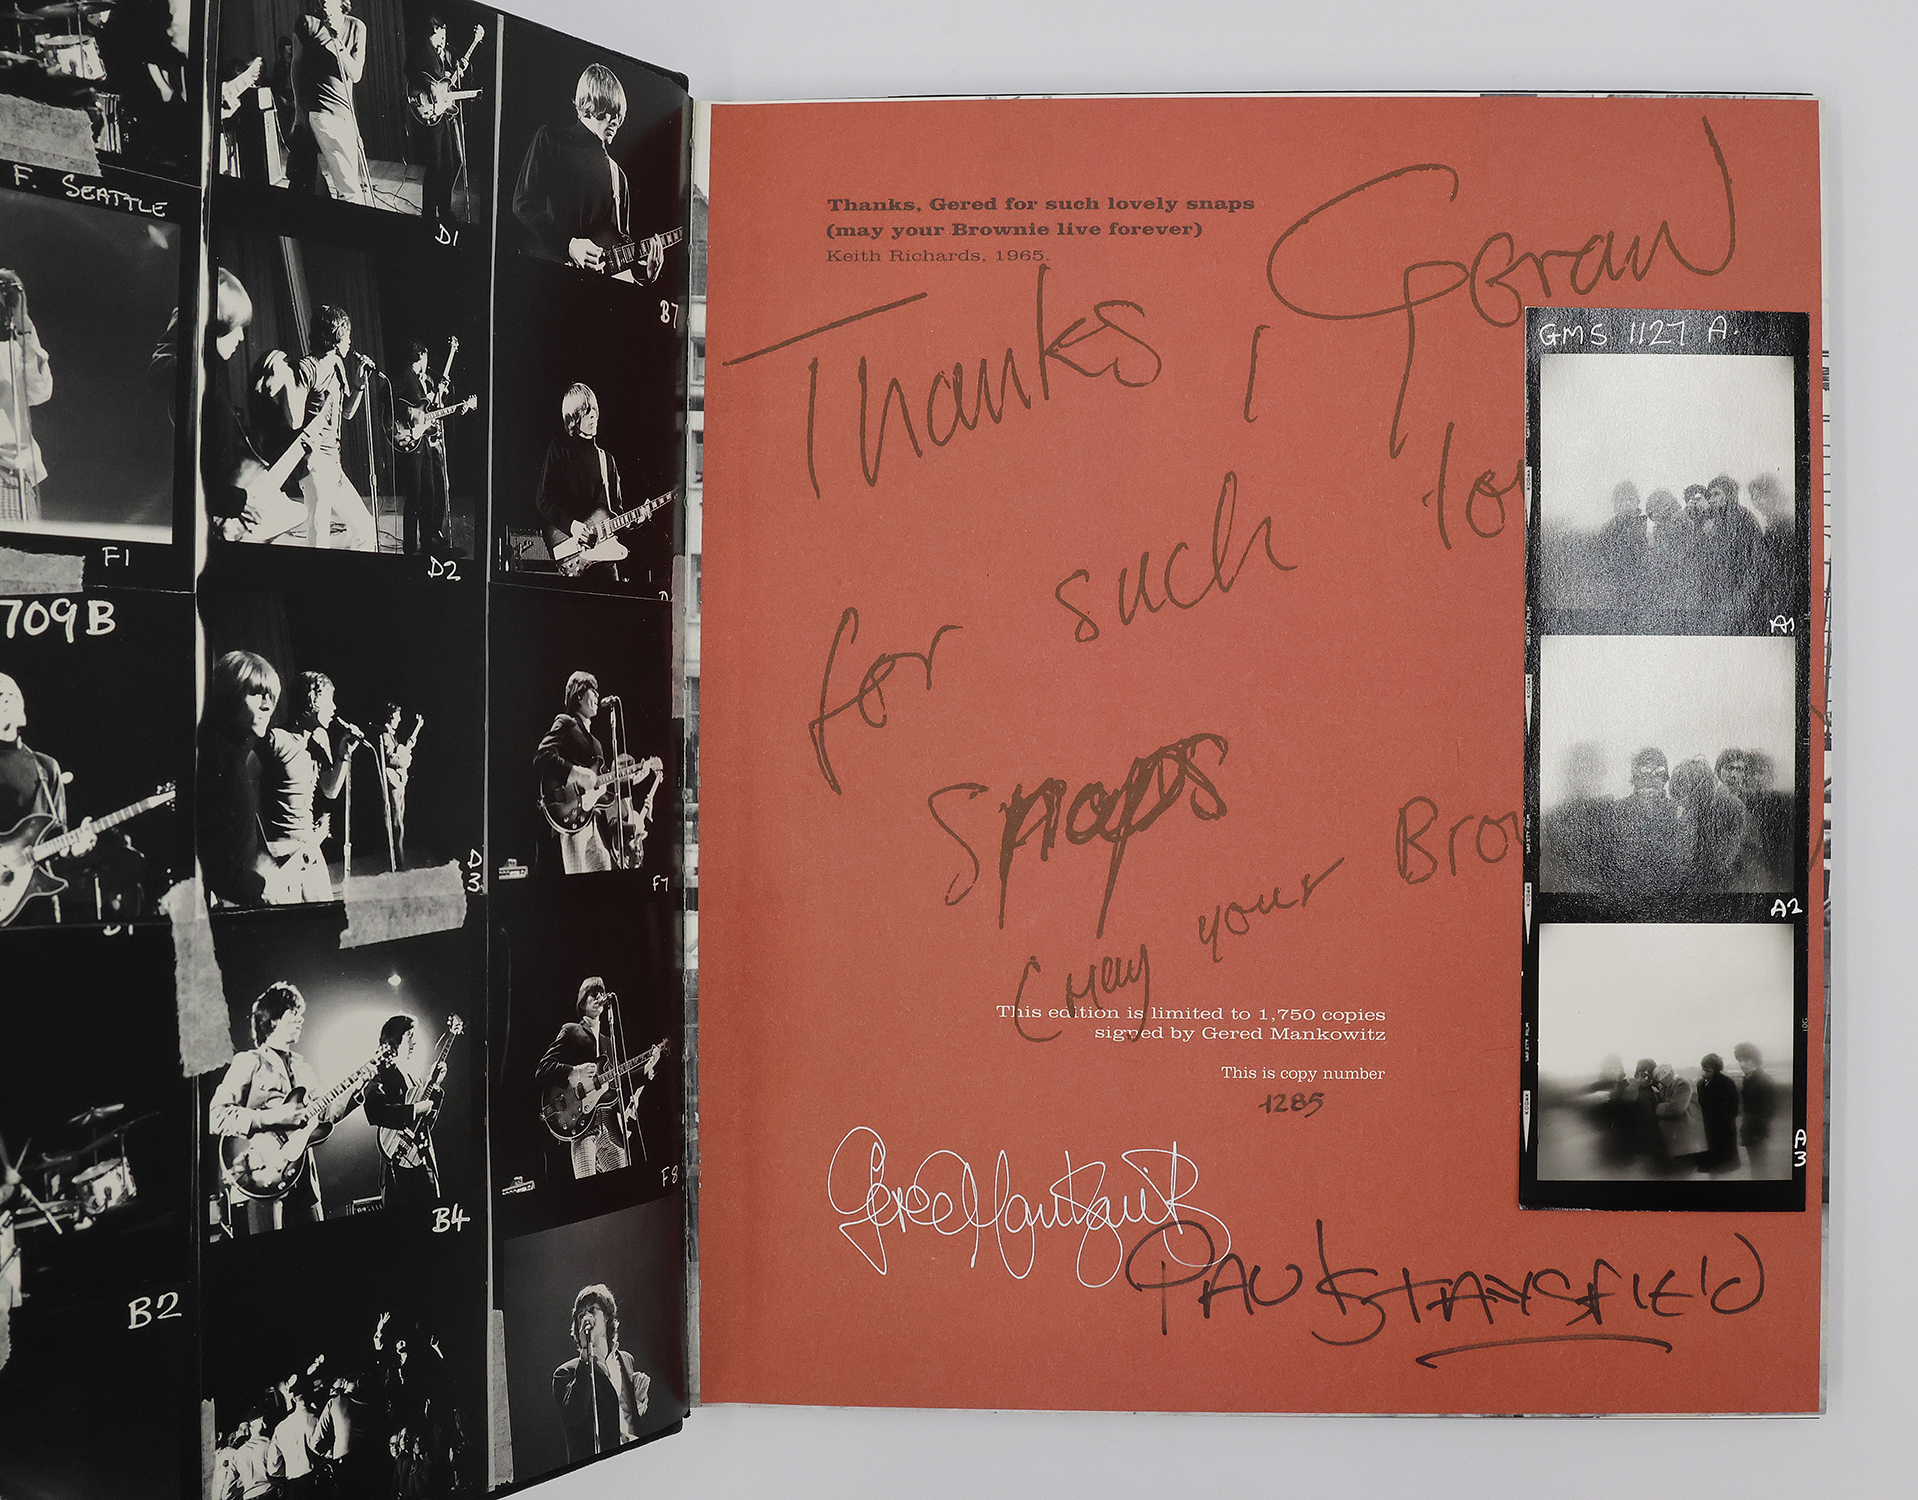 F. SEATTLE
F1
709B
B2
D1
D2
D
3
B4
B7
F7
F8
Thanks, Gered for such lovely snaps
(may your Brownie live forever)
Keith Richards, 1965.
Thanks, Gered
for such lov
snaps
(may your Brow
This edition is limited to 1,750 copies
signed by Gered Mankowitz
This is copy number
1285
Gered Mankowitz
PAUL STANSFIELD
GMS 1127 A.
A1
A2
A
3